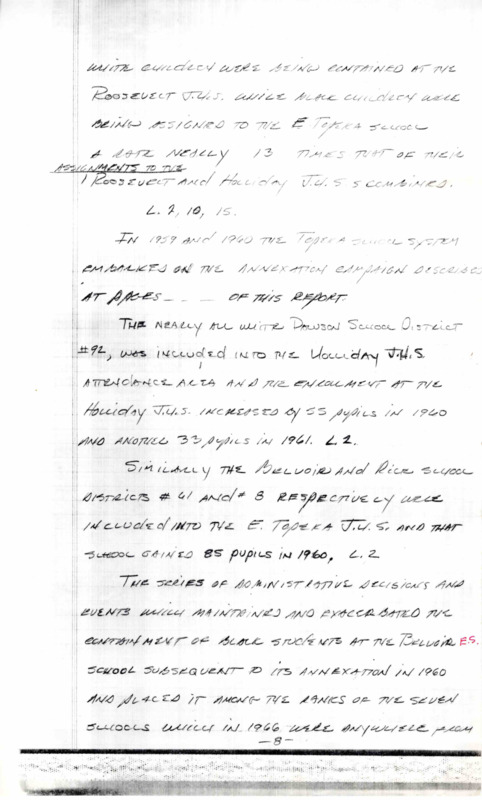 WHITE CHILDREN WERE BEING CONTAINED AT THE
ROOSEVELT J.H.S. WHILE BLACK CHILDREN WERE
BEING ASSIGNED TO THE E TOPEKA SCHOOL
A RATE NEARLY 13 TIMES THAT OF THEIR
ASSIGNMENTS TO THE
ROOSEVELT AND HOLLIDAY J.H.S S COMBINED.
L. 2, 10, 15.
IN 1959 AND 1960 THE TOPEKA SCHOOL SYSTEM
EMBARKED ON THE ANNEXATION CAMPAIGN DESCRIBED
AT PAGES _ _ _ OF THIS REPORT.
THE NEARLY ALL WHITE DAWSON SCHOOL DISTRICT
#92, WAS INCLUDED INTO THE HOLLIDAY J.H.S.
ATTENDANCE AREA AND THE ENROLLMENT AT THE
HOLLIDAY J.H.S. INCREASED BY 55 PUPILS IN 1960
AND ANOTHER 33 PUPILS IN 1961. L.2.
SIMILARLY THE BELVOIR AND RICE SCHOOL
DISTRICTS #41 AND #8 RESPECTIVELY WERE
INCLUDED INTO THE E. TOPEKA J.H.S. AND THAT
SCHOOL GAINED 85 PUPILS IN 1960, L.2
THE SERIES OF ADMINISTRATIVE DECISIONS AND
EVENTS WHICH MAINTAINED AND EXACERBATED THE
CONTAINMENT OF BLACK STUDENTS AT THE BELVOIR E.S.
SCHOOL SUBSEQUENT TO ITS ANNEXATION IN 1960
AND PLACED IT AMONG THE RANKS OF THE SEVEN
SCHOOLS WHICH IN 1966 WERE ANYWHERE FROM
-8-